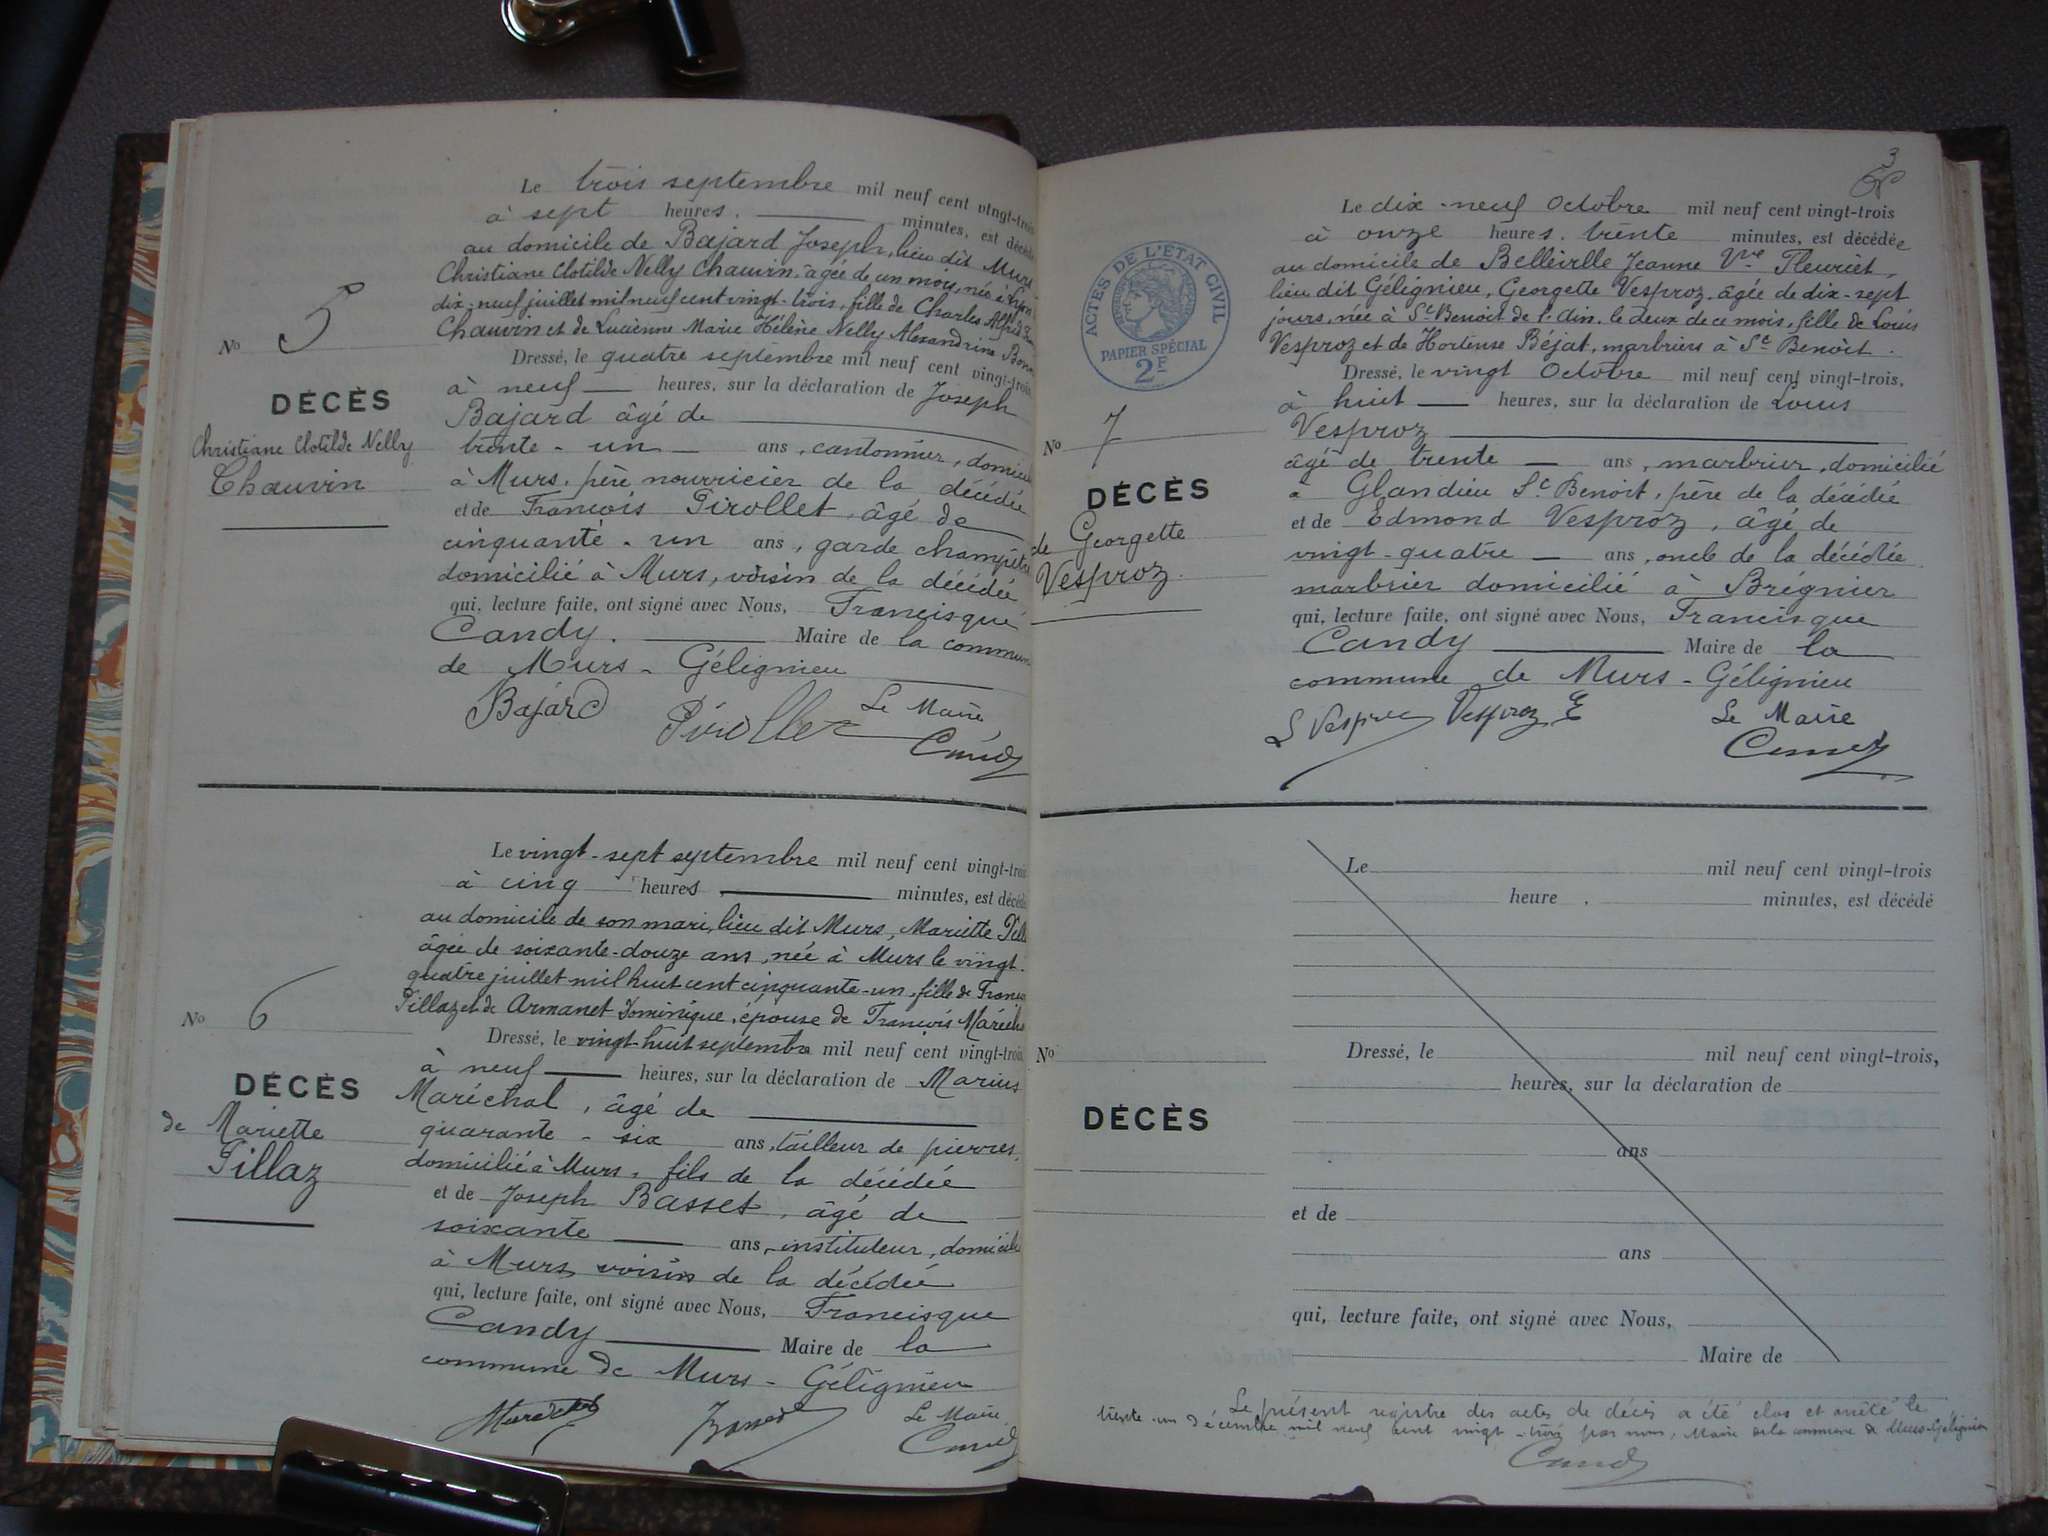 Le trois septembre mil neuf cent vingt-trois
à sept heures. minutes, est décédée
au domicile de Bajard Joseph, lieu dit Murs
Christiane Clotilde Nelly Chauvin, âgée de un mois, née à
dix-neuf juillet mil neuf cent vingt-trois, fille de Charles Alfred
Chauvin et de Lucienne Marie Hélène Nelly Alexandrine
Dressé, le quatre septembre mil neuf cent vingt-trois
à neuf heures, sur la déclaration de Joseph
Bajard âgé de
trente-un ans, cantonnier, domicilié
à Murs, père nourricier de la décédée
et de François Pirollet, âgé de
cinquante-un ans, garde champêtre
domicilié à Murs, voisin de la décédée,
qui, lecture faite, ont signé avec Nous, Francisque
Candy. Maire de la commune
de Murs-Gélignieu
Bajard Pirollet Le Maire
Candy
No 5
DÉCÈS
Christiane Clotilde Nelly
Chauvin
Le vingt-sept septembre mil neuf cent vingt-trois
à cinq heures minutes, est décédée
au domicile de son mari, lieu dit Murs, Mariette
âgée de soixante-douze ans, née à Murs le vingt-
quatre juillet mil huit cent cinquante-un, fille de
Pillaz et de Armanet Dominique, épouse de François Maréchal
Dressé, le vingt-huit septembre mil neuf cent vingt-trois
à neuf heures, sur la déclaration de Marius
Maréchal, âgé de
quarante-six ans, tailleur de pierres,
domicilié à Murs, fils de la décédée
et de Joseph Basset, âgé de
soixante ans, instituteur, domicilié
à Murs voisin de la décédée
qui, lecture faite, ont signé avec Nous, Francisque
Candy Maire de la
commune de Murs-Gélignieu
Maréchal Basset Le Maire
Candy
No 6
DÉCÈS
de Mariette
Pillaz
3
Le dix-neuf Octobre mil neuf cent vingt-trois
à onze heures. trente minutes, est décédée
au domicile de Belleville Jeanne Vve Fleuriet,
lieu dit Gélignieu, Georgette Vesproz, âgée de dix-sept
jours, née à St Benoit de l'Ain, le deux de ce mois, fille de Louis
Vesproz et de Hortense Béjat, marbriers à St Benoit.
Dressé, le vingt Octobre mil neuf cent vingt-trois,
à huit heures, sur la déclaration de Louis
Vesproz
âgé de trente ans, marbrier, domicilié
à Glandieu St Benoit, père de la décédée
et de Edmond Vesproz, âgé de
vingt-quatre ans, oncle de la décédée
marbrier domicilié à Brégnier
qui, lecture faite, ont signé avec Nous, Francisque
Candy Maire de la
commune de Murs-Gélignieu
L Vesproz Vesproz E Le Maire
Candy
ACTES DE L'ÉTAT CIVIL
PAPIER SPÉCIAL
2F
No 7
DÉCÈS
de Georgette
Vesproz.
Le mil neuf cent vingt-trois
heure , minutes, est décédé
Dressé, le mil neuf cent vingt-trois,
heures, sur la déclaration de
ans
et de
ans
qui, lecture faite, ont signé avec Nous,
Maire de
No
DÉCÈS
Le présent registre des actes de décès a été clos et arrêté le
trente-un décembre mil neuf cent vingt-trois par nous, Maire de la commune de Murs-Gélignieu
Candy